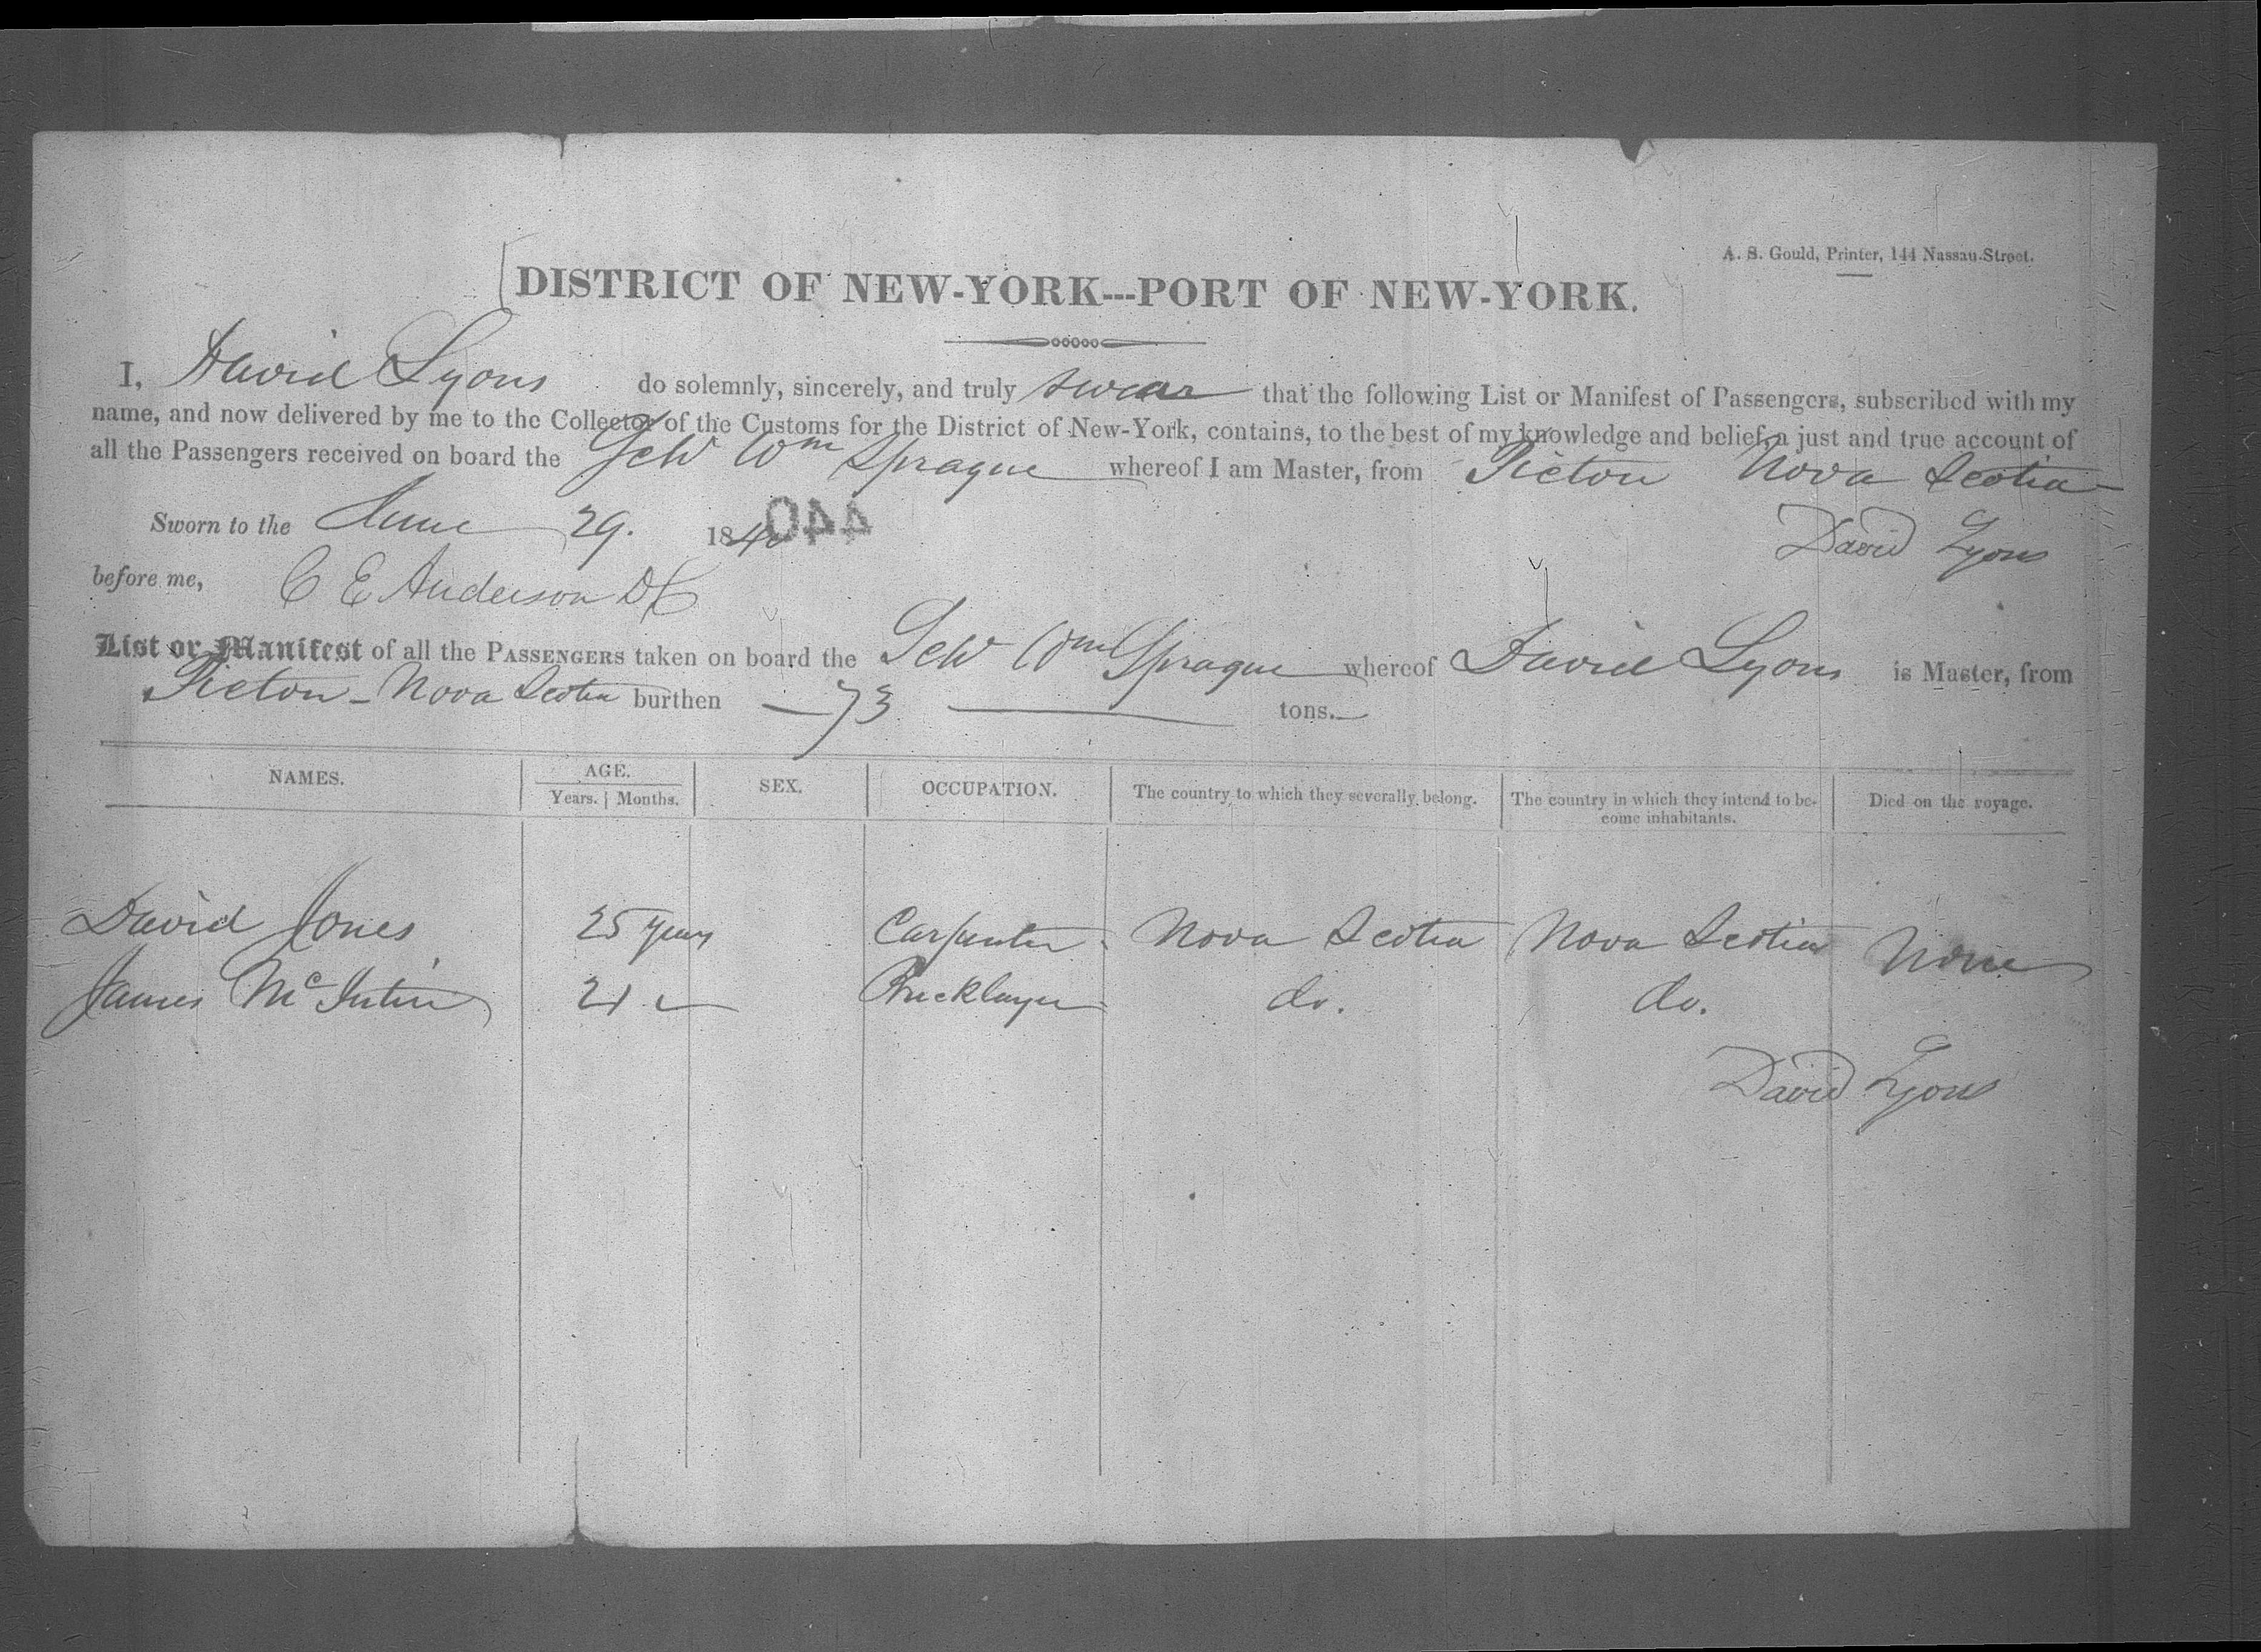 A. S. Gould, Printer, 144 Nassau-Street.
DISTRICT OF NEW-YORK---PORT OF NEW-YORK.
I, David Lyons do solemnly, sincerely, and truly swear that the following List or Manifest of Passengers, subscribed with my
name, and now delivered by me to the Collector of the Customs for the District of New-York, contains, to the best of my knowledge and belief, a just and true account of
all the Passengers received on board the Schr Wm Sprague whereof I am Master, from Picton Nova Scotia
Sworn to the June 29. 1840 440
David Lyons
before me, C E Anderson DC
List or Manifest of all the PASSENGERS taken on board the Schr Wm Sprague whereof David Lyons is Master, from
Picton - Nova Scotia burthen 73 tons.
NAMES. AGE. SEX. OCCUPATION. The country to which they severally belong. The country in which they intend to be- Died on the voyage.
Years. Months. come inhabitants.
David Jones 25 years Carpenter Nova Scotia Nova Scotia None
James Mc 21 Bricklayer do. do.
David Lyons